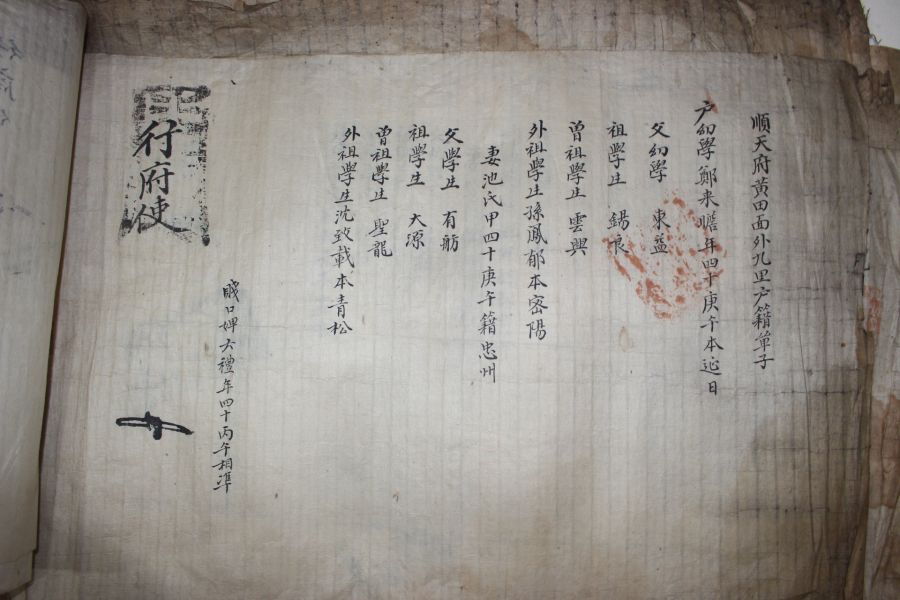 順天府黃田面外九里戶籍單子
戶幼學鄭来 年四十庚午本延日
父幼學 東益
祖學生 錫良
曾祖學生 雲興
外祖學生孫鳳郁本密陽
妻池氏甲四十庚午籍忠州
父學生 有舫
祖學生 大源
曾祖學生 聖龍
外祖學生沈致載本青松
賤口婢六禮年四十丙午相準
行府使